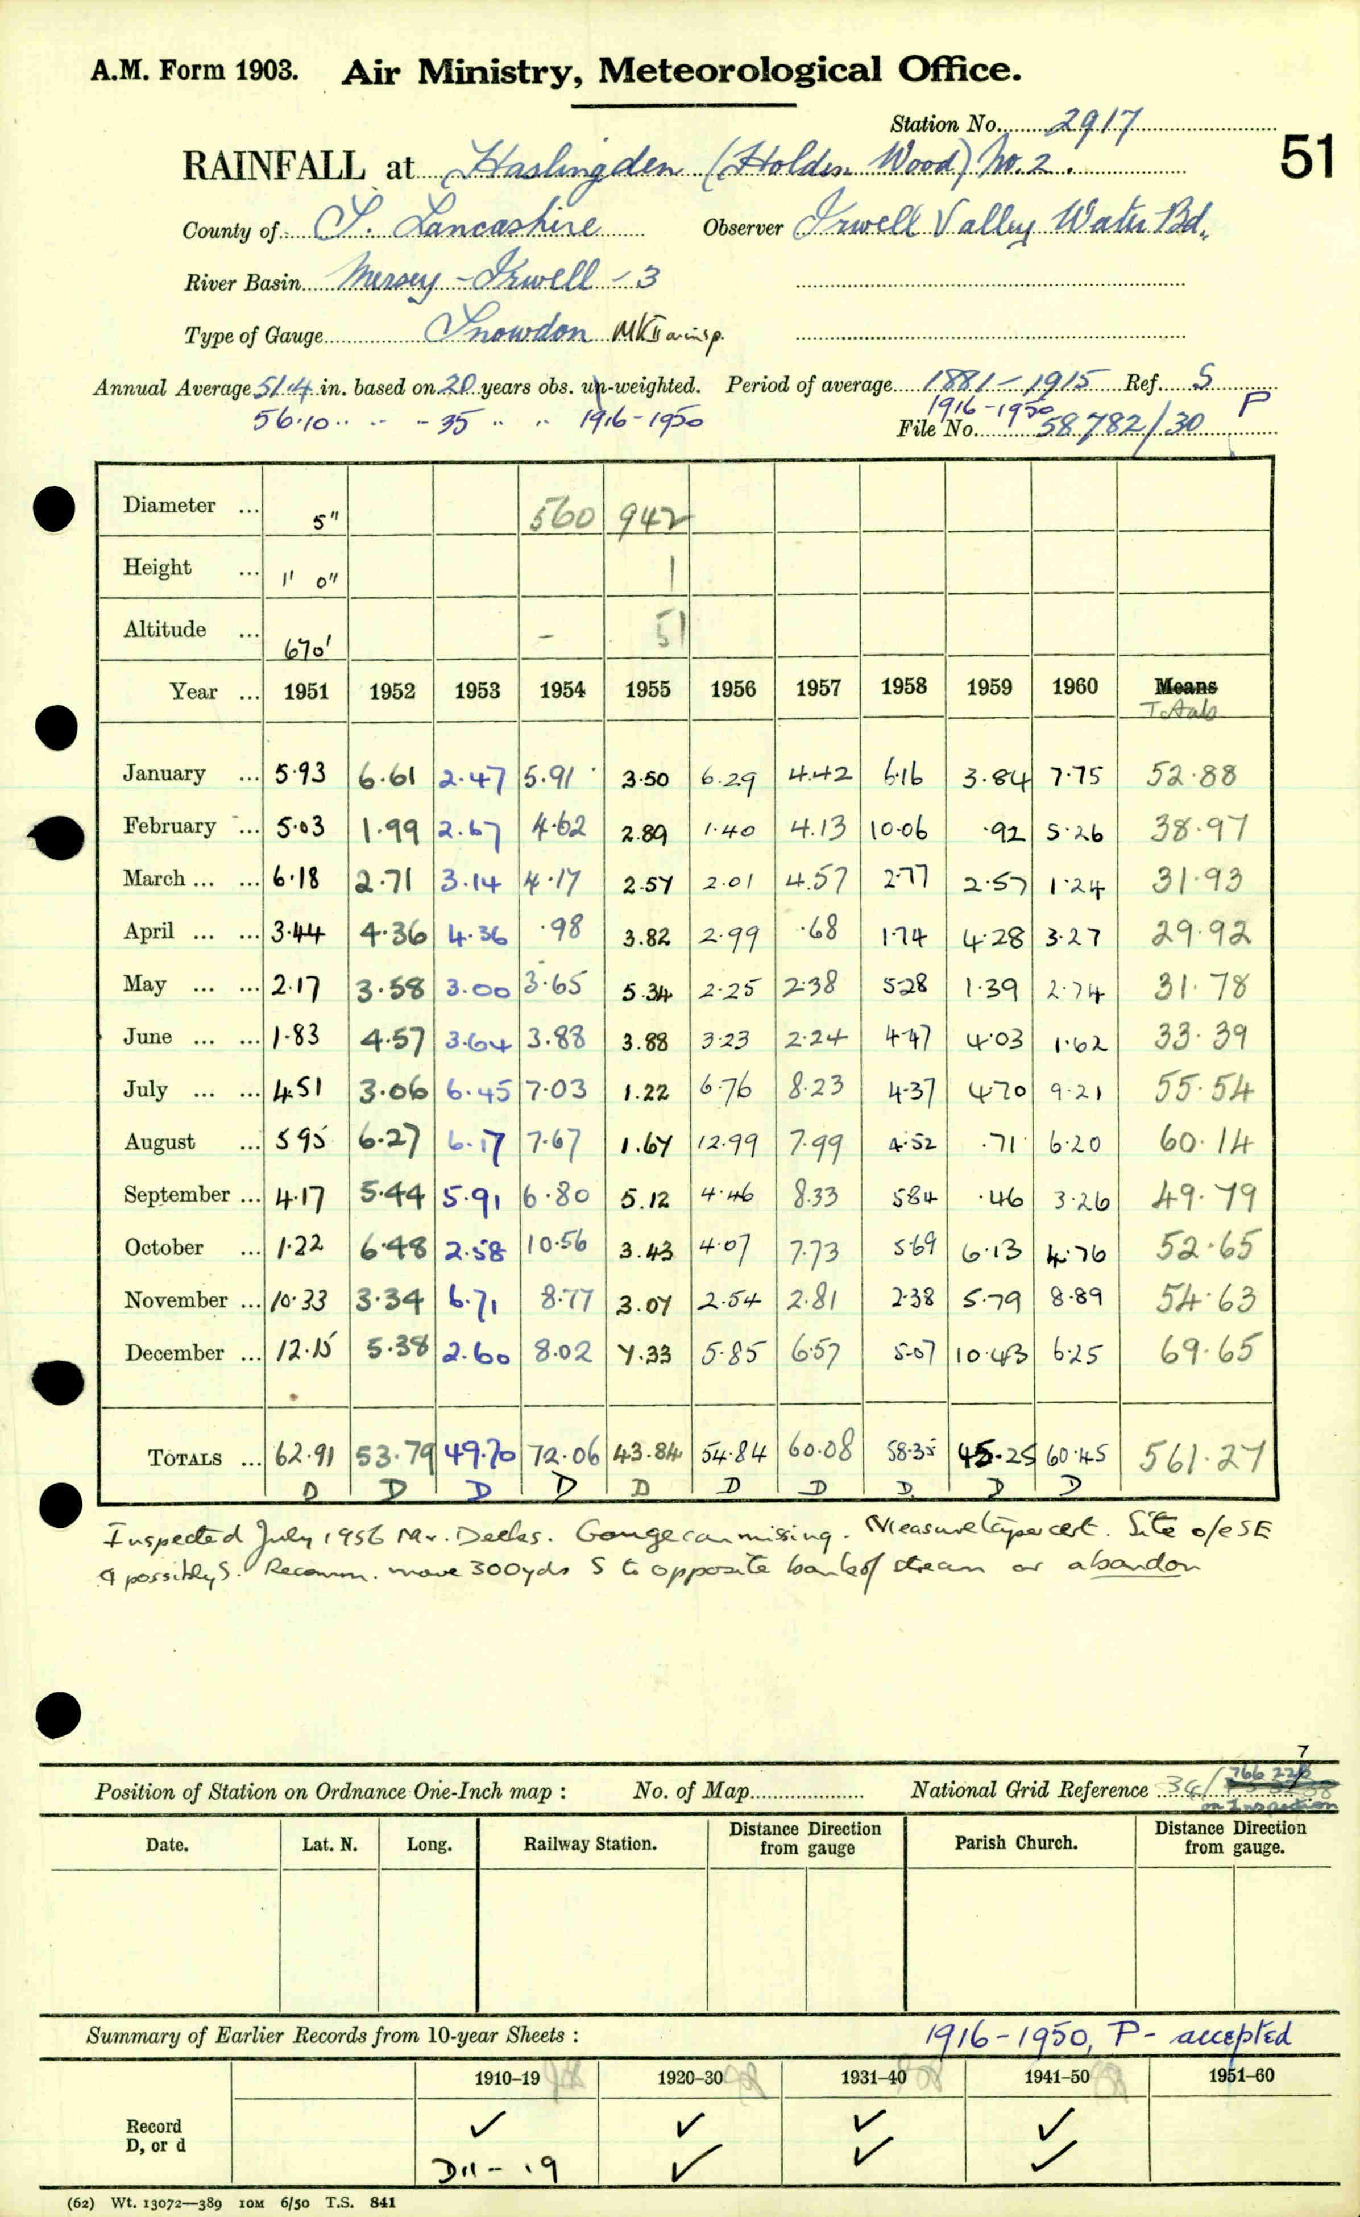 A.M. Form 1903. Air Ministry, Meteorological Office.
Station No. 2917
51
RAINFALL at Haslingden (Holden Wood) No. 2.
County of S. Lancashire Observer Irwell Valley Water Bd.
River Basin Mersey - Irwell - 3
Type of Gauge Snowdon MKII
Annual Average 51.4 in. based on 20 years obs. un-weighted. Period of average 1881-1915 Ref. S
56.10 .. .. - 35 .. .. 1916-1950 1916-1950 P
File No. 58782/30
Diameter ... 5" 560 942
Height ... 1' 0" 1
Altitude ... 670' - 51
Year ... 1951 1952 1953 1954 1955 1956 1957 1958 1959 1960 Means
Totals
January ... 5.93 6.61 2.47 5.91 3.50 6.29 4.42 6.16 3.84 7.75 52.88
February ... 5.03 1.99 2.67 4.62 2.89 1.40 4.13 10.06 .92 5.26 38.97
March ... ... 6.18 2.71 3.14 4.17 2.57 2.01 4.57 2.77 2.57 1.24 31.93
April ... ... 3.44 4.36 4.36 .98 3.82 2.99 .68 1.74 4.28 3.27 29.92
May ... ... 2.17 3.58 3.00 3.65 5.34 2.25 2.38 5.28 1.39 2.74 31.78
June ... ... 1.83 4.57 3.64 3.88 3.88 3.23 2.24 4.47 4.03 1.62 33.39
July ... ... 4.51 3.06 6.45 7.03 1.22 6.76 8.23 4.37 4.70 9.21 55.54
August ... 5.95 6.27 6.17 7.67 1.67 12.99 7.99 4.52 .71 6.20 60.14
September ... 4.17 5.44 5.91 6.80 5.12 4.46 8.33 5.84 .46 3.26 49.79
October ... 1.22 6.48 2.58 10.56 3.43 4.07 7.73 5.69 6.13 4.76 52.65
November ... 10.33 3.34 6.71 8.77 3.07 2.54 2.81 2.38 5.79 8.89 54.63
December ... 12.15 5.38 2.60 8.02 7.33 5.85 6.57 5.07 10.43 6.25 69.65
TOTALS ... 62.91 53.79 49.70 72.06 43.84 54.84 60.08 58.35 45.25 60.45 561.27
D D D D D D D D D D
Inspected July 1956 Mr. Gauge can missing. Measure tapercert. Site o/e SE
& possibly S. Recomm. move 300yds S to opposite bank of stream or abandon
7
766 228
Position of Station on Ordnance One-Inch map : No. of Map National Grid Reference 34/
on Inspection
Date. Lat. N. Long. Railway Station. Distance from Direction gauge Parish Church. Distance from Direction gauge.
Summary of Earlier Records from 10-year Sheets : 1916-1950, P- accepted
1910–19 1920–30 1931–40 1941–50 1951–60
Record ✓ ✓ ✓ ✓
D, or d D11-19 ✓ ✓ ✓
(62) Wt. 13072—389 10M 6/50 T.S. 841